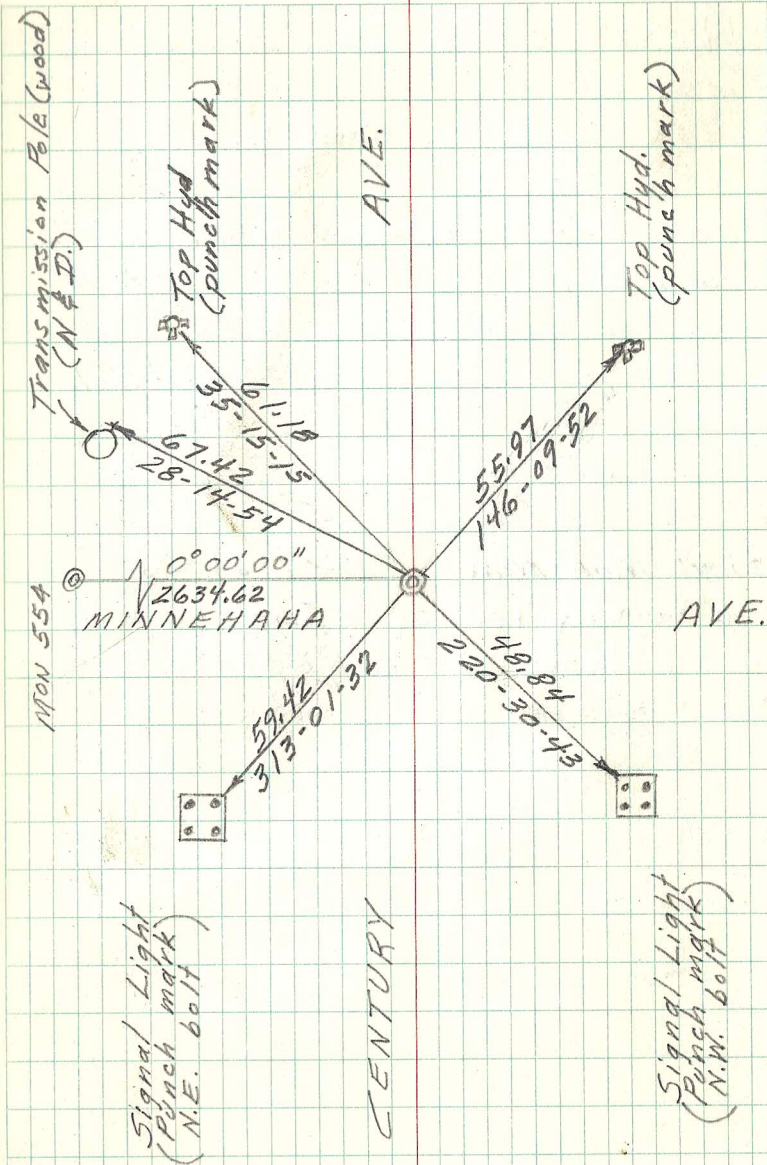 Transmission Pole (wood)
(N & D.)
Top Hyd
(punch mark)
AVE.
Top Hyd.
(punch mark)
61.18
35-15-15
67.42
28-14-54
55.97
146-09-52
MON 554
0°00'00"
2634.62
MINNEHAHA
AVE.
59.42
313-01-32
48.84
220-30-43
Signal Light
(Punch mark
N.E. bolt)
CENTURY
Signal Light
(Punch mark
N.W. bolt)